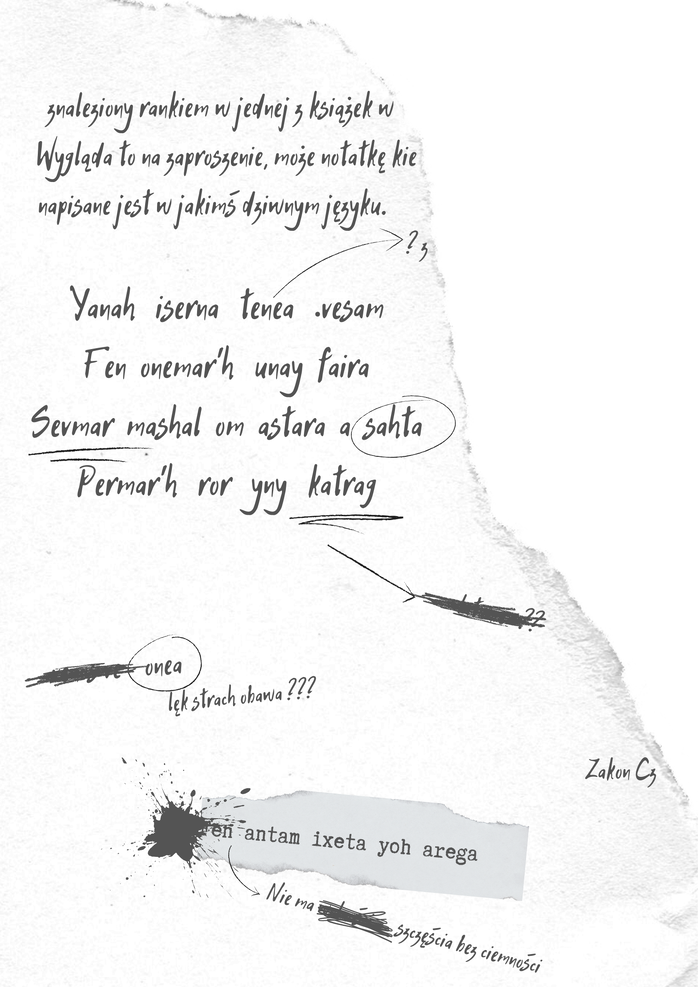 znaleziony rankiem w jednej z książek w
Wygląda to na zaproszenie, może notatkę kie
napisane jest w jakimś dziwnym języku.
? z
Yanah iserna tenea .vesam
Fen onemar'h unay faira
Sevmar mashal om astara a sahta
Permar'h ror yny katrag
??
onea
lęk strach obawa ???
Zakon Cz
en antam ixeta yoh arega
Nie ma szczęścia bez ciemności